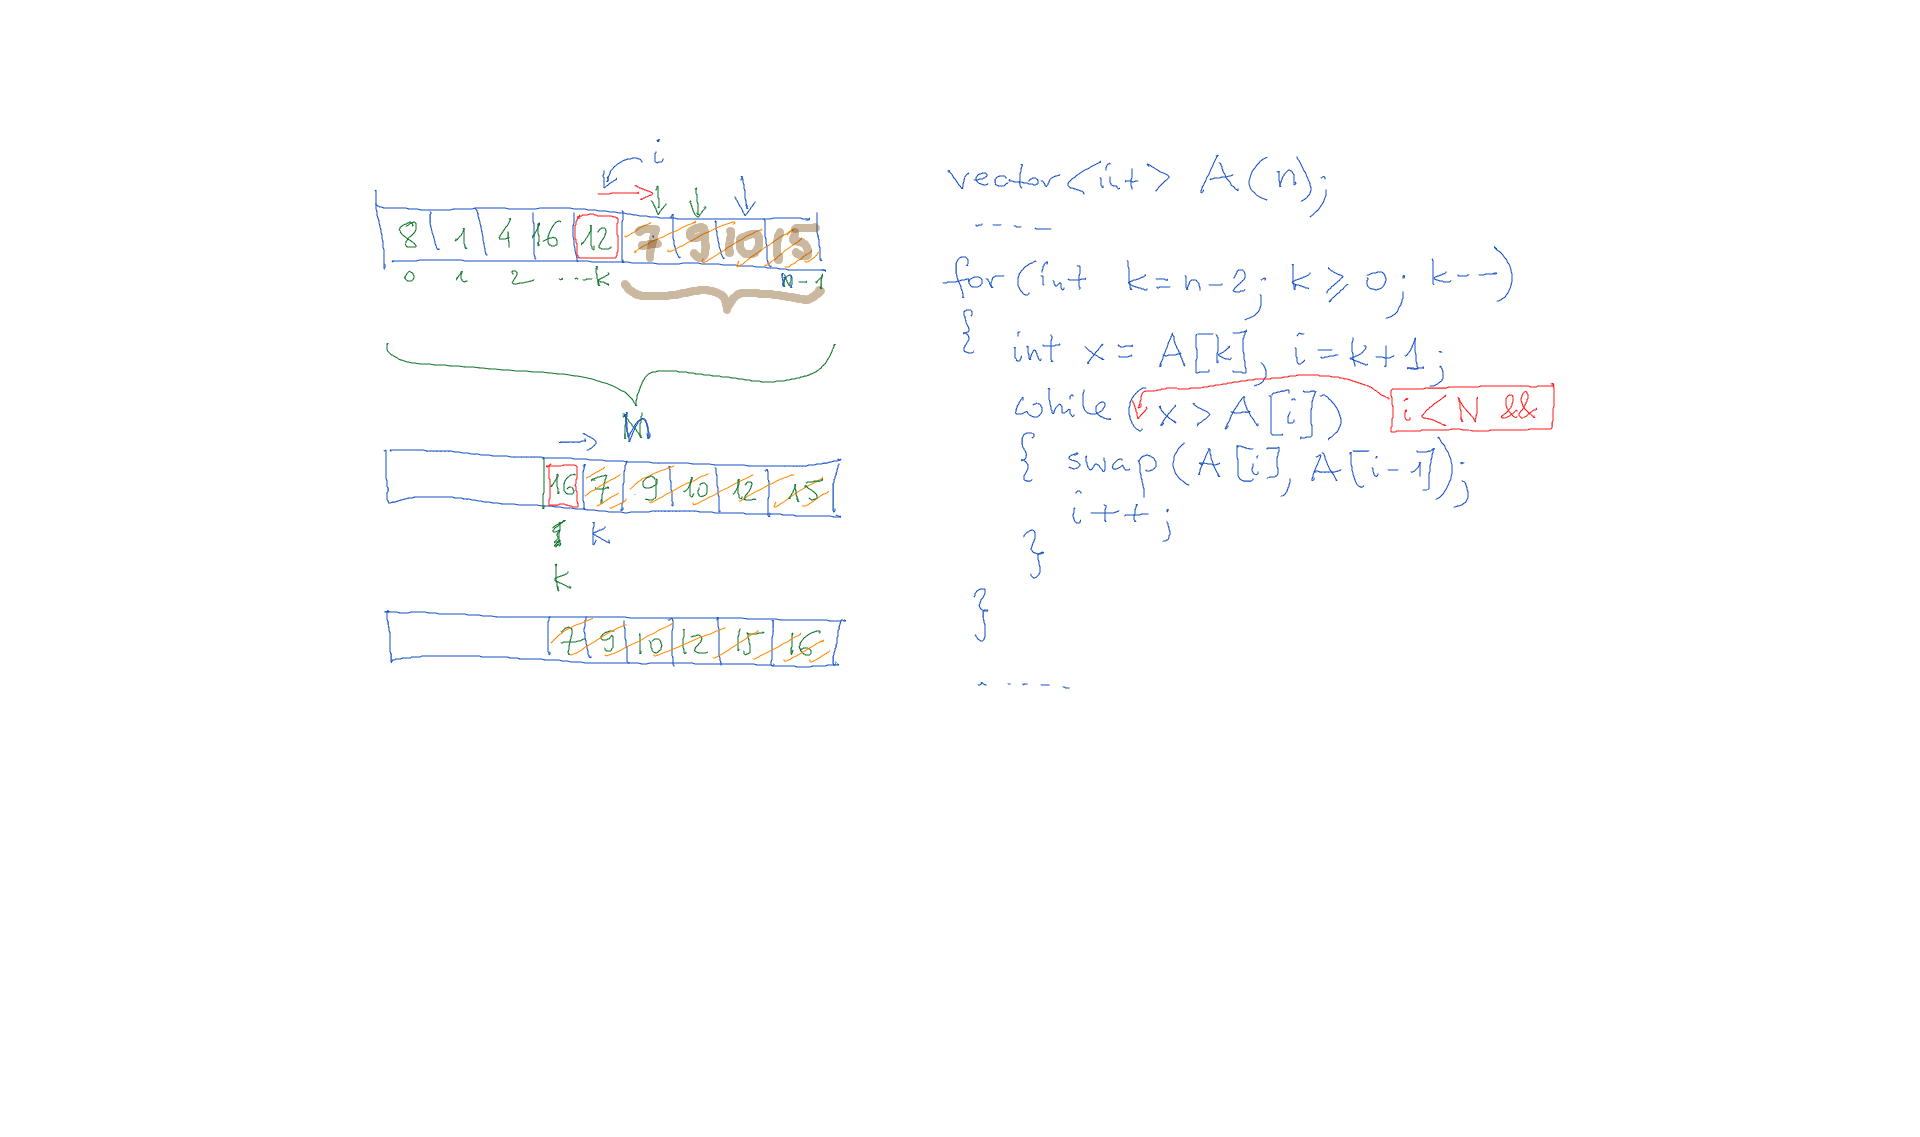 i
8 1 4 16 12 7 9 10 15
0 1 2 ....-k n-1
n
16 7 9 10 12 15
k
k
7 9 10 12 15 16
vector<int> A(n);
----
for (int k=n-2; k⩾0; k--)
{ int x = A[k], i=k+1;
while (x > A[i])
i<N &&
{ swap(A[i], A[i-1]);
i++;
}
}
.----